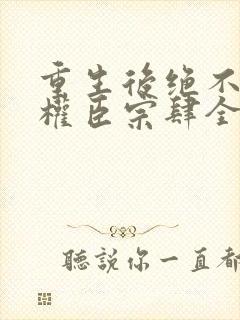 重生後绝不
權臣宗肆全
聽説你一直都